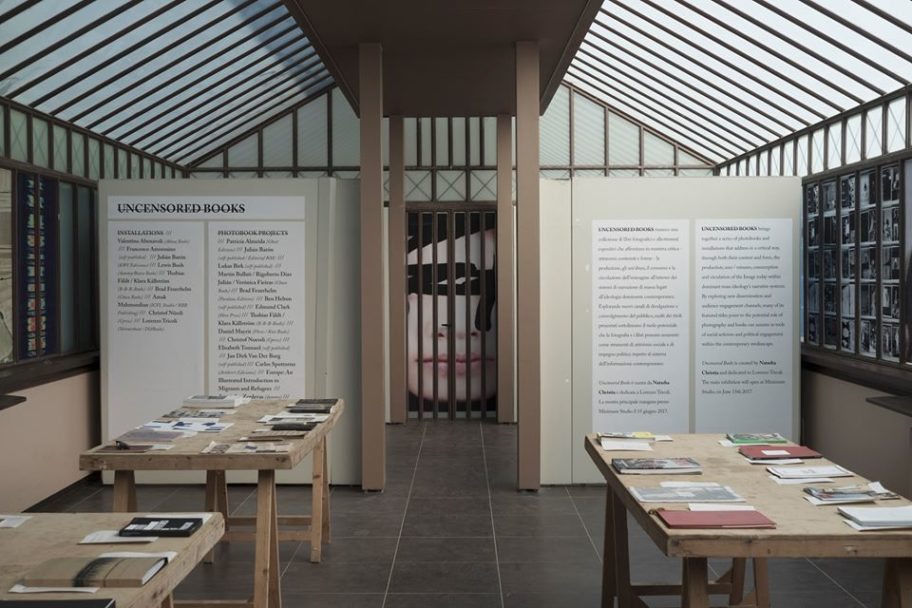 UNCENSORED BOOKS
INSTALLATIONS ///
Valentina Abenavoli (Akina Books)
/// Francesco Amorosino
(self-published) /// Julián Barón
(RM Editorial) /// Lewis Bush
/// Thobias
Fäldt / Klara Källström
(B-B-B Books) /// Brad Feuerhelm
/// Amak
Mahmoodian
/// Christof Nüssli
(Cpress) /// Lorenzo Tricoli
PHOTOBOOK PROJECTS
/// Patrícia Almeida
/// Julián Barón
(self-published / Editorial RM) ///
Lukas Birk (self-published) ///
Martin Bollati / Rigoberto Díaz
Julián / Verónica Fieiras
/// Brad Feuerhelm
/// Ben Helton
(self-published) /// Edmund Clark
/// Thobias Fäldt /
Klara Källström (B-B-B Books) ///
Daniel Mayrit
/// Christof Nuessli (Cpress) ///
Elisabeth Tonnard (self-published)
/// Jan Dirk Van Der Burg
(self-published) /// Carlos Spottorno
/// Europe: An
Illustrated Introduction to
Migrants and Refugees ///
UNCENSORED BOOKS riunisce una
collezione di libri fotografici e allestimenti
espositivi che affrontano in maniera critica -
attraverso contenuti e forme - la
produzione, gli usi/abusi, il consumo e la
circolazione dell'immagine all'interno dei
sistemi di narrazione di massa legati
all'ideologia dominante contemporanea.
Esplorando nuovi canali di divulgazione e
coinvolgimento del pubblico, molti dei titoli
presentati sottolineano il ruolo potenziale
che la fotografia e i libri possono assumere
come strumenti di attivismo sociale e di
impegno politico rispetto al sistema
dell'informazione contemporaneo.
Uncensored Books è curata da Natasha
Christia e dedicata a Lorenzo Tricoli.
La mostra principale inaugura presso
Minimum Studio il 10 giugno 2017.
UNCENSORED BOOKS brings
together a series of photobooks and
installations that address in a critical way,
through both their content and form, the
production, uses / misuses, consumption
and circulation of the Image today within
dominant mass ideology's narrative systems.
By exploring new dissemination and
audience engagement channels, many of its
featured titles point to the potential role of
photography and books can assume as tools
of social activism and political engagement
within the contemporary mediascape.
Uncensored Books is curated by Natasha
Christia and dedicated to Lorenzo Tricoli.
The main exhibition will open at Minimum
Studio, on June 10th 2017.